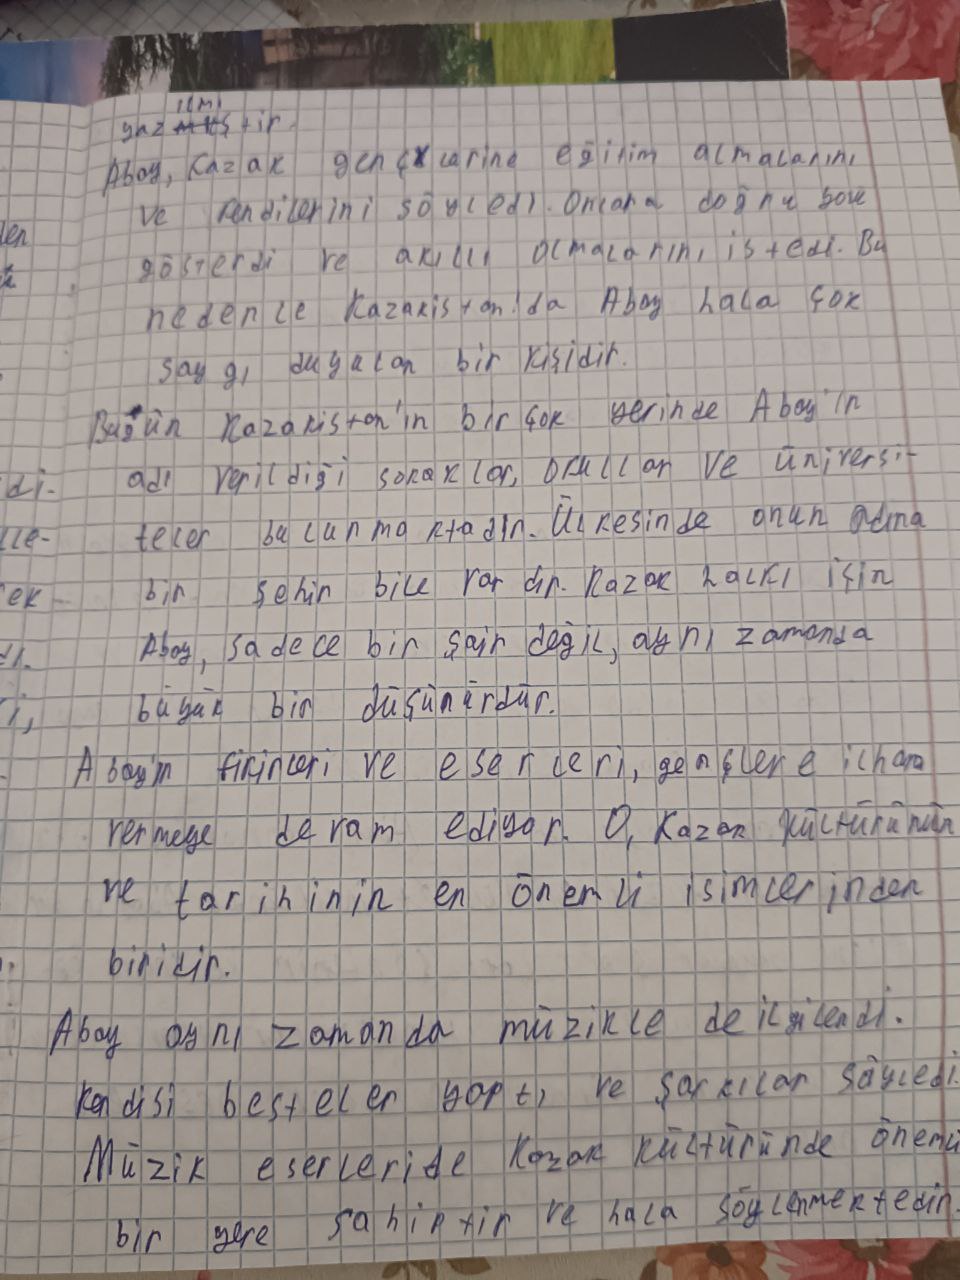 yaz ılm ştir.
Abay, Kazak gençlerine eğitim almalarını
ve kendilerini söyledi. Onlara doğru
gösterdi ve akıllı olmalarını istedi. Bu
nedenle Kazakistan'da Abay hala çok
saygı duyulan bir kişidir.
Bugün Kazakistan'ın bir çok yerinde Abay'ın
di- adı verildiği sokaklar, okullar ve üniversi-
lle- teler bulunmaktadır. Ülkesinde onun adına
ek bir şehir bile vardır. Kazak halkı için
Abay, sadece bir şair değil, aynı zamanda
i, büyük bir düşünürdür.
Abay'ın fikirleri ve eserleri, gençlere ilham
vermeye devam ediyor. O, Kazak kültürünün
ve tarihinin en önemli isimlerinden
biridir.
Abay aynı zamanda müzikle de ilgilendi.
Kendisi besteler yaptı ve şarkılar söyledi.
Müzik eserleride Kazak kültüründe önemli
bir yere sahiptir ve hala söylenmektedir.